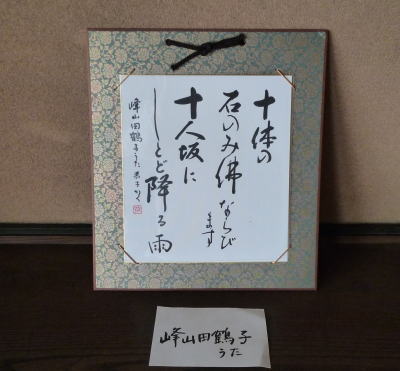 十体の
石のみ佛ならび
ます
十人坂に
しとど降る雨
峰山田鶴子うた 恭子かく
峰山田鶴子
うた